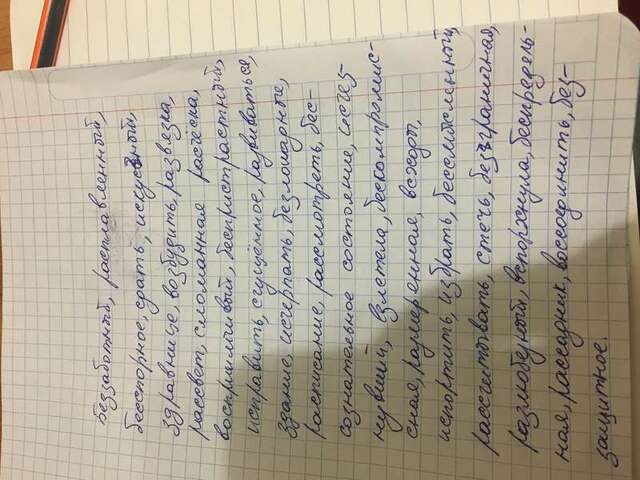 Беззаботный, расплавленный,
бесспорное, сдать, искусный,
здравнице, возбудить, развязка,
рассвет, сломанная расчёска,
восприимчивый, беспристрастный,
исправить, сгущённое, развиваться,
здание, исчерпать, безлошадные,
расписание, рассмотреть, бес-
сознательное состояние, исчез
нувший, взлетела, бескомпромис-
сная, размеренная, всходы,
испортить, избрать, бессмысленный,
рассчитывать, стечь, безграничная,
разлюбезный, вспорхнула, беспредель-
ная, рассадник, воссоединить, без-
защитное.